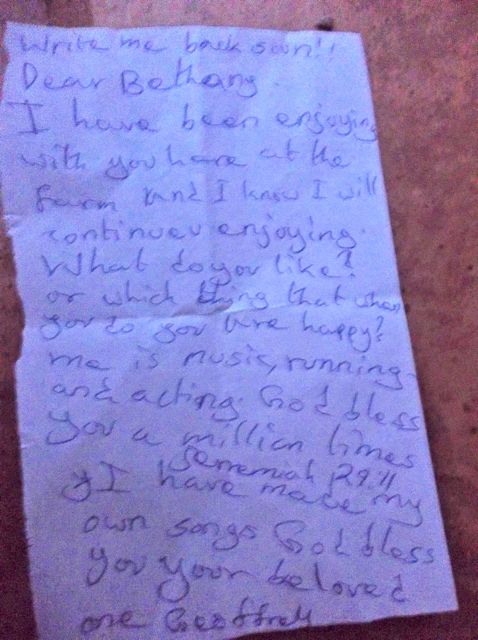 Write me back soon!!
Dear Bethany.
I have been enjoying
with you here at the
farm and I know I will
continue enjoying.
What do you like?
or which thing that when
you do you are happy?
me is music, running
and acting. God bless
you a million times
Jeremiah 29.11
I have made my
own songs God bless
you your beloved
one Geoffrey